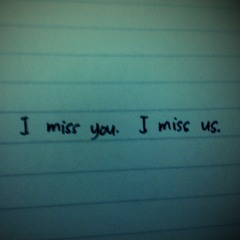 I miss you. I miss us.